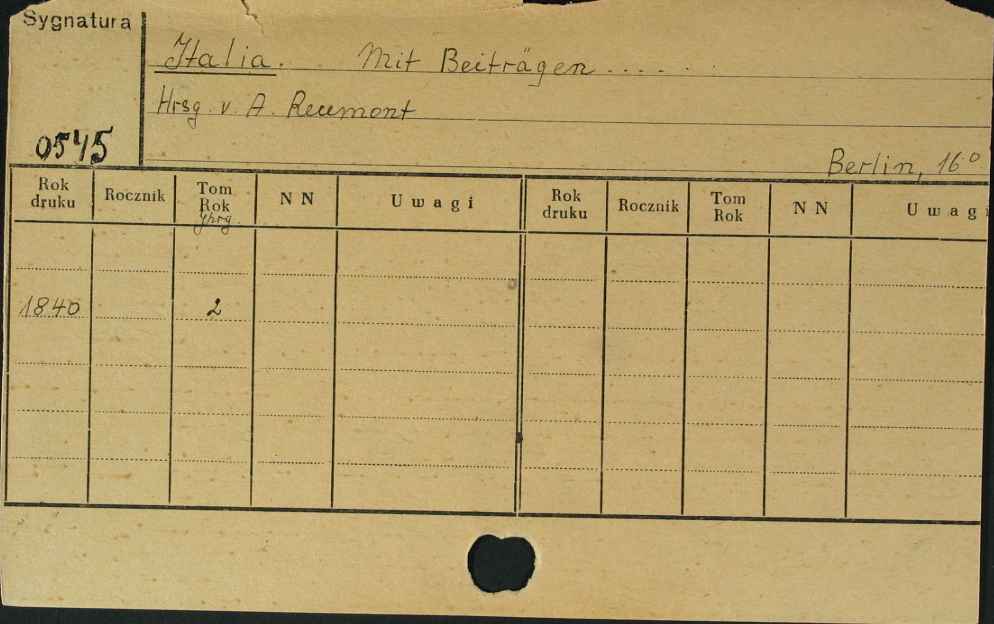 Sygnatura
Italia. Mit Beiträgen .....
Hrsg. v. A. Reumont
0545
Berlin, 16°
Rok druku Rocznik Tom Rok Jhrg. N N Uwagi Rok druku Rocznik Tom Rok N N Uwagi
1840 2